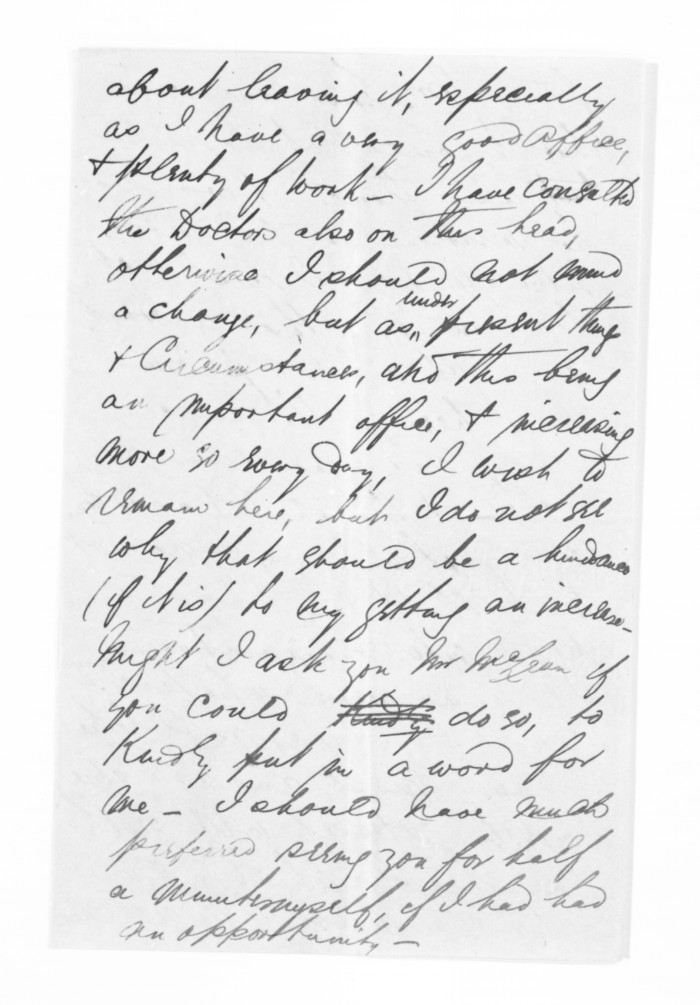 about leaving it, especially
as I have a very good office,
& plenty of work – I have consulted
the Doctors also on this head,
otherwise I should not mind
a change, but as under present things
& Circumstances, and this being
an important office, & increasing
more so every day, I wish to
remain here, but I do not see
why that should be a hindrance
(if it is) to my getting an increase –
Might I ask you Mr McLean if
you could kindly do so, to
Kindly put in a word for
me – I should have much
preferred seeing you for half
a minute myself, if I had had
an opportunity –